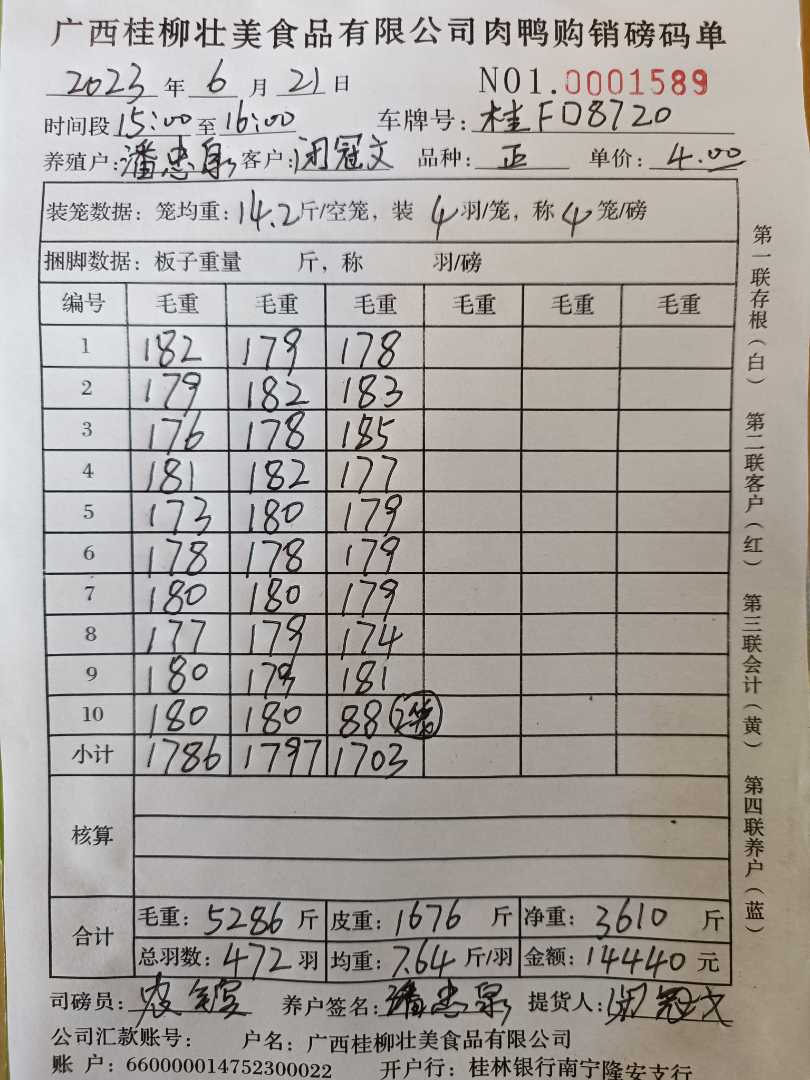 广西桂柳壮美食品有限公司肉鸭购销磅码单
2023 年 6 月 21 日 NO1.0001589
时间段 15:00 至 16:00 车牌号: 桂FD8720
养殖户: 潘忠泉 客户: 闭冠文 品种: 正 单价: 4.00
装笼数据: 笼均重: 14.2 斤/空笼, 装 4 羽/笼, 称 4 笼/磅
捆脚数据: 板子重量 斤, 称 羽/磅
编号 毛重 毛重 毛重 毛重 毛重 毛重
1 182 179 178
2 179 182 183
3 176 178 185
4 181 182 177
5 173 180 179
6 178 178 179
7 180 180 179
8 177 179 174
9 180 179 181
10 180 180 88
小计 1786 1797 1703
核算
合计
毛重: 5286 斤 皮重: 1676 斤 净重: 3610 斤
总羽数: 472 羽 均重: 7.64 斤/羽 金额: 14440 元
司磅员: 养户签名: 潘忠泉 提货人: 闭冠文
公司汇款账号: 户名: 广西桂柳壮美食品有限公司
账 户: 660000014752300022 开户行: 桂林银行南宁隆安支行
第一联存根(白) 第二联客户(红) 第三联会计(黄) 第四联养户(蓝)